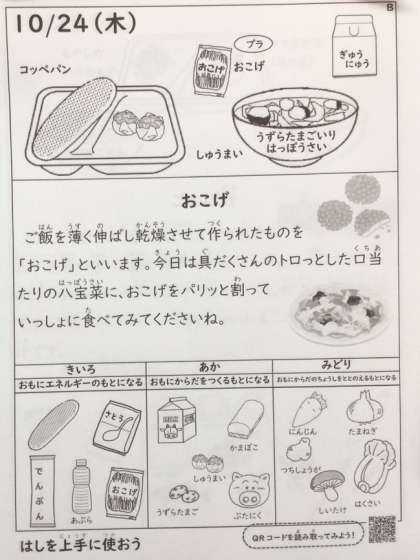 B
10/24(木)
プラ
ぎゅう
にゅう
コッペパン
おこげ
おこげ
しゅうまい
うずらたまごいり
はっぽうさい
おこげ
ご飯を薄く伸ばし乾燥させて作られたものを
「おこげ」といいます。今日は具だくさんのトロっとした口当
たりの八宝菜に、おこげをパリッと割って
いっしょに食べてみてくださいね。
きいろ
おもにエネルギーのもとになる
あか
おもにからだをつくるもとになる
みどり
おもにからだのちょうしをととのえるもとになる
さとう
でんぷん
あぶら
おこげ
かまぼこ
しゅうまい
うずらたまご
ぶたにく
にんじん
たまねぎ
つちしょうが
しいたけ
はくさい
はしを上手に使おう
QRコードを読み取ってみよう!